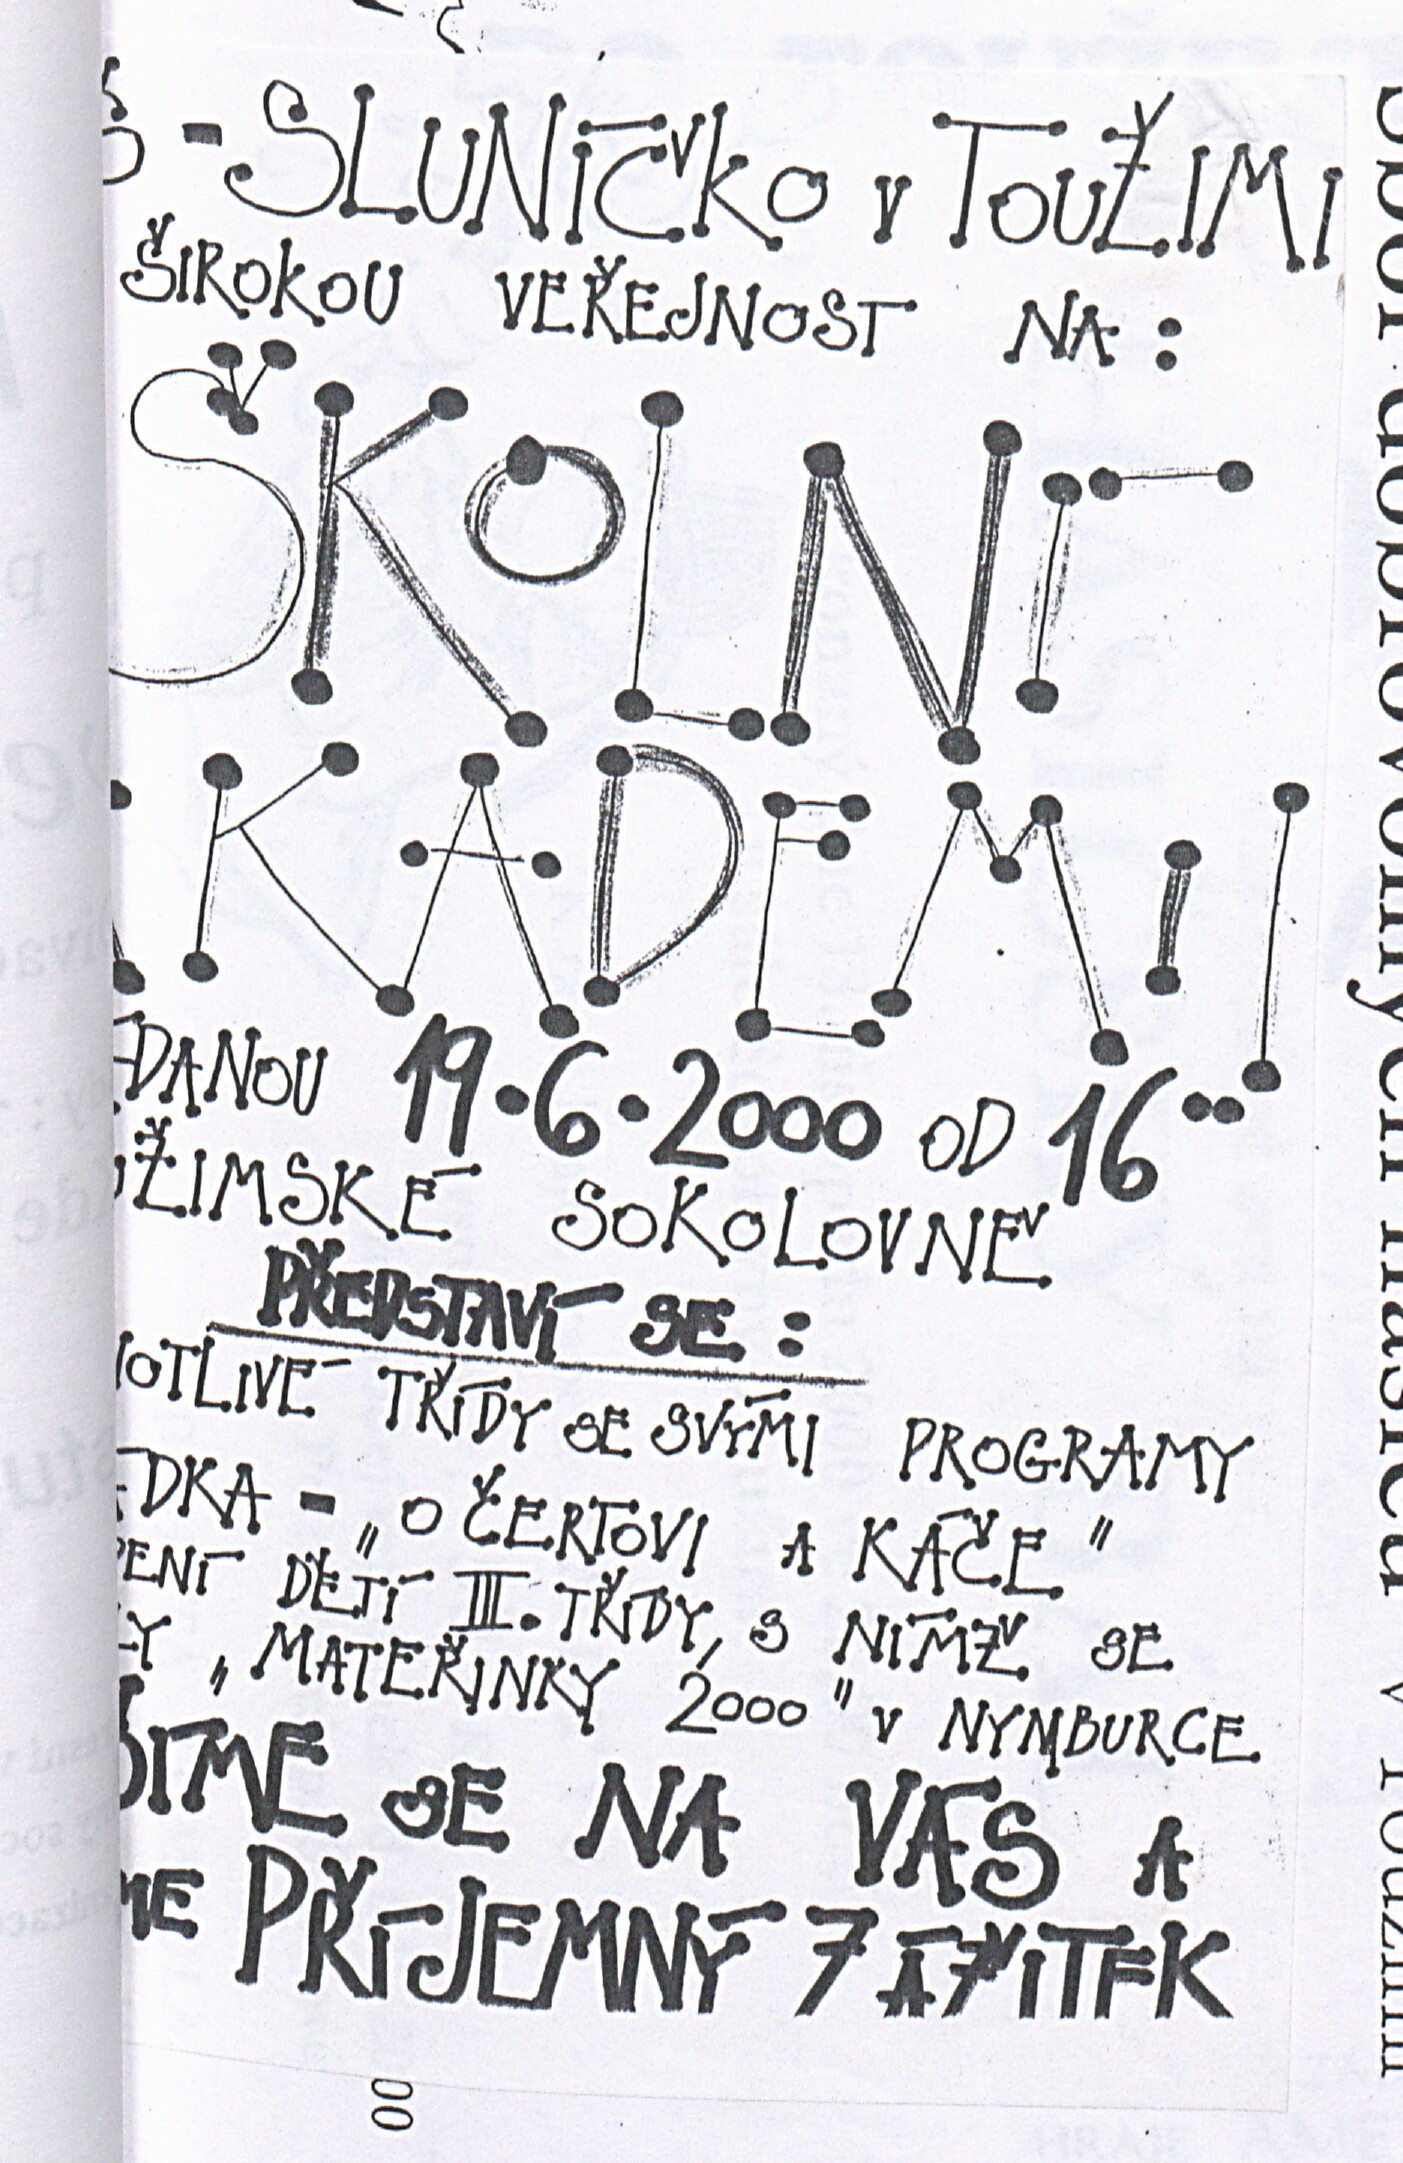 Š - SLUNÍČKO v TOUŽIMI
ŠIROKOU VEŘEJNOST NA:
ŠKOLNÍ
AKADEMII
EDANOU 19.6.2000 OD 16°°
UŽIMSKÉ SOKOLOVNĚ
PŘEDSTAVÍ SE:
NOTLIVÉ TŘÍDY SE SVÝMI PROGRAMY
EDKA - „O ČERTOVI A KÁČE"
PENÍ DĚTÍ III. TŘÍDY, S NÍMŽ SE
KY „MATEŘINKY 2000" v NYMBURCE
ŠÍME SE NA VÁS A
ME PŘÍJEMNÝ ZÁŽITEK
00
sbor dobrovolných hasičů v Toužimi